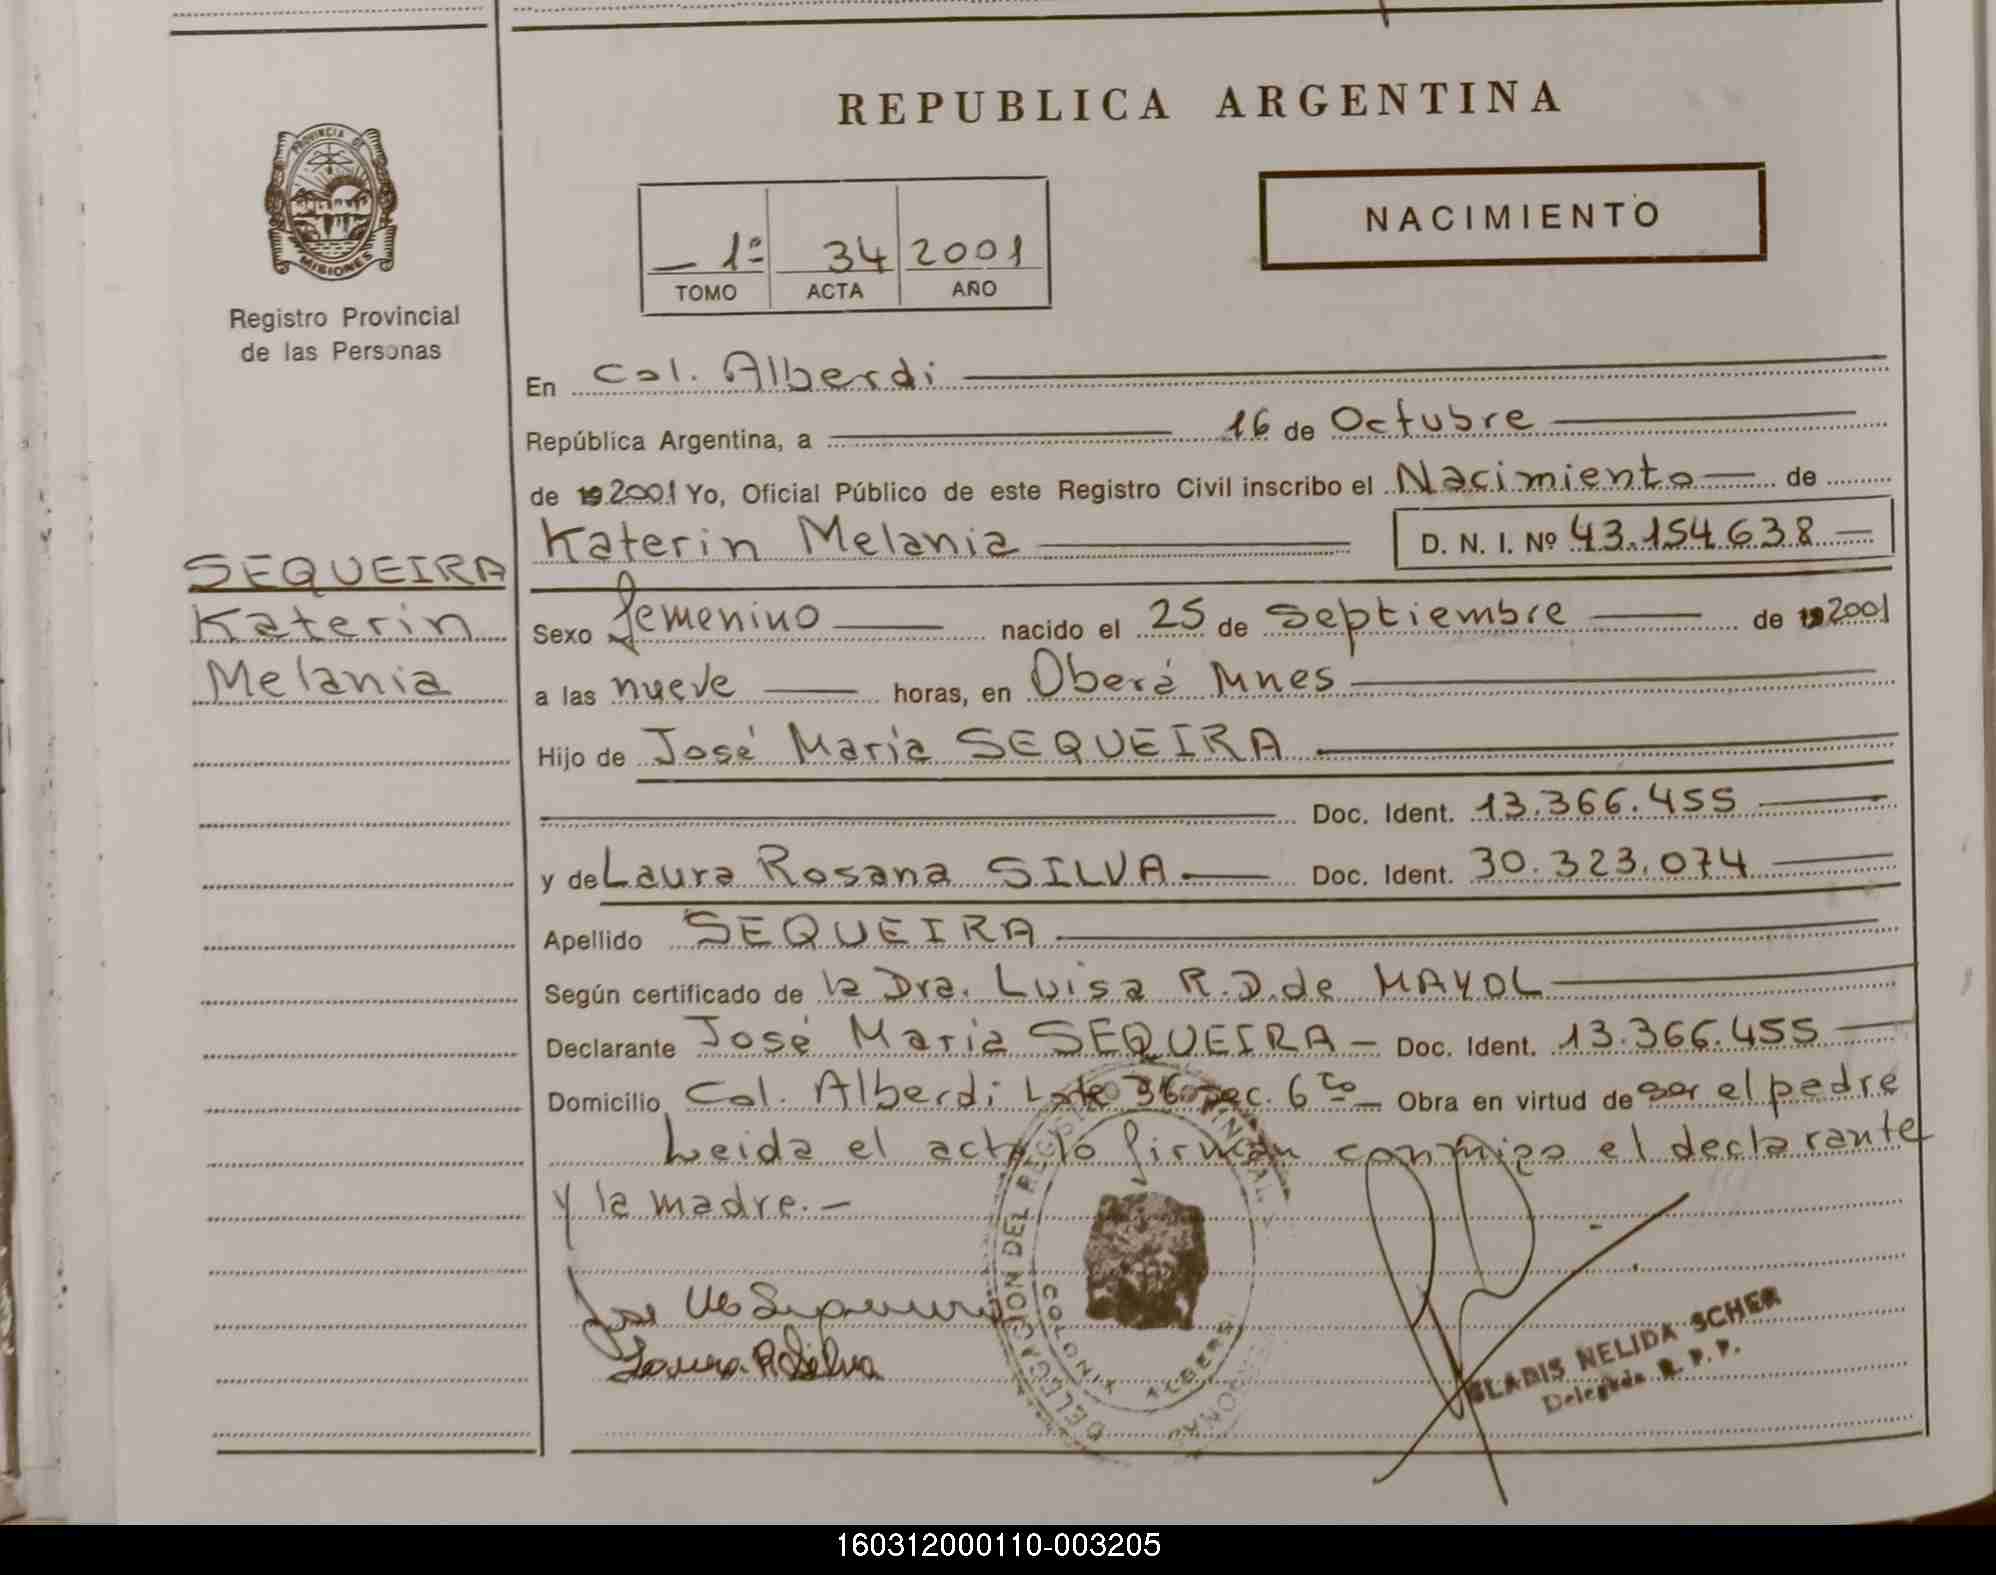 REPUBLICA ARGENTINA
PROVINCIA DE
MISIONES
Registro Provincial
de las Personas
1º 34 2001
TOMO ACTA AÑO
NACIMIENTO
SEQUEIRA
Katerin
Melania
En Col. Alberdi
República Argentina, a 16 de Octubre
de 19 2001 Yo, Oficial Público de este Registro Civil inscribo el Nacimiento de
Katerin Melania D. N. I. Nº 43.154.638
Sexo femenino nacido el 25 de Septiembre de 19 2001
a las nueve horas, en Oberá Mnes
Hijo de José María SEQUEIRA
Doc. Ident. 13.366.455
y de Laura Rosana SILVA Doc. Ident. 30.323.074
Apellido SEQUEIRA
Según certificado de la Dra. Luisa R.D. de MAYOL
Declarante José María SEQUEIRA - Doc. Ident. 13.366.455
Domicilio Col. Alberdi Lote 36 Sec. 6ta Obra en virtud de ser el padre
Leida el acta lo firman conmigo el declarante
y la madre.-
Jose Ma Sequeira
Laura R Silva
DELEGACION DEL REGISTRO PROVINCIAL
COLONIA ALBERDI
GLADIS NELIDA SCHER
Delegada R. P. P.
160312000110-003205